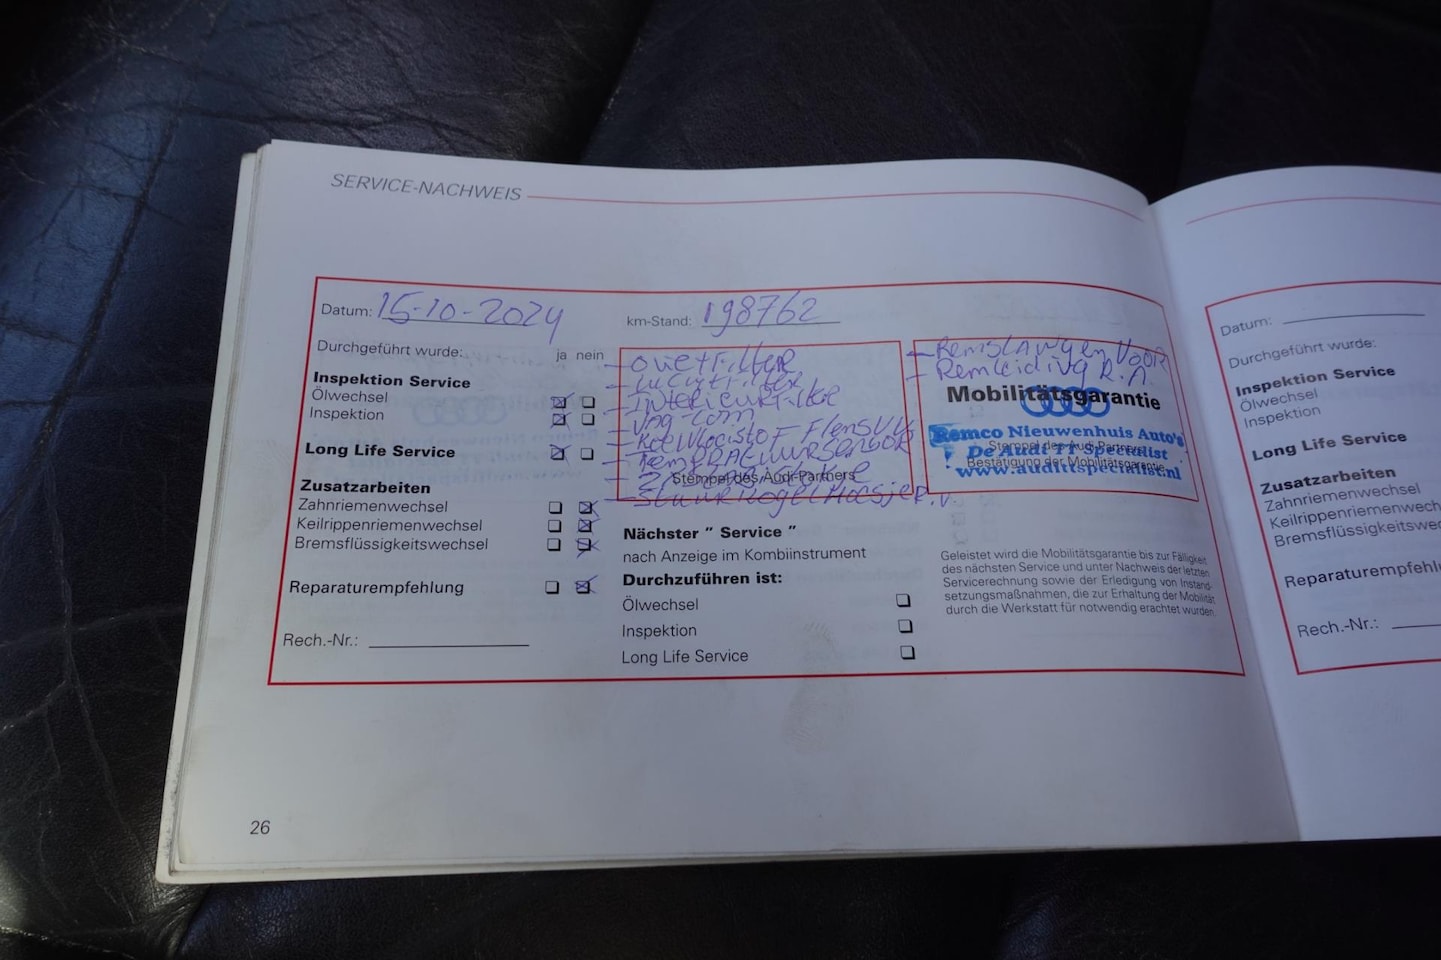 SERVICE-NACHWEIS
Datum: 15-10-2024
km-Stand: 198762
Durchgeführt wurde: ja nein
Inspektion Service
Ölwechsel
Inspektion
Long Life Service
Zusatzarbeiten
Zahnriemenwechsel
Keilrippenriemenwechsel
Bremsflüssigkeitswechsel
Reparaturempfehlung
Rech.-Nr.:
- Luchtfilter
- Interieurfilter
- Koelvloeistof Flens
- Temperatuursensor
Stempel des Audi-Partners
Nächster " Service "
nach Anzeige im Kombiinstrument
Durchzuführen ist:
Ölwechsel
Inspektion
Long Life Service
- Remslangen Voor
- Remleiding R.A.
Mobilitätsgarantie
Remco Nieuwenhuis Auto's
De Audi TT Specialist
www.audittspecialist.nl
Stempel des Audi-Partners
Bestätigung der Mobilitätsgarantie
Geleistet wird die Mobilitätsgarantie bis zur Fälligkeit
des nächsten Service und unter Nachweis der letzten
Servicerechnung sowie der Erledigung von Instand-
setzungsmaßnahmen, die zur Erhaltung der Mobilität
durch die Werkstatt für notwendig erachtet wurden.
26
Datum:
Durchgeführt wurde:
Inspektion Service
Ölwechsel
Inspektion
Long Life Service
Zusatzarbeiten
Zahnriemenwechsel
Rech.-Nr.: